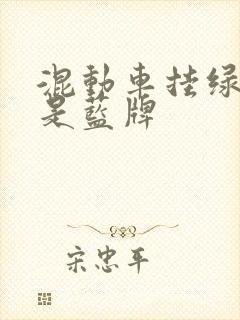 混動車挂绿
是藍牌
宋忠平